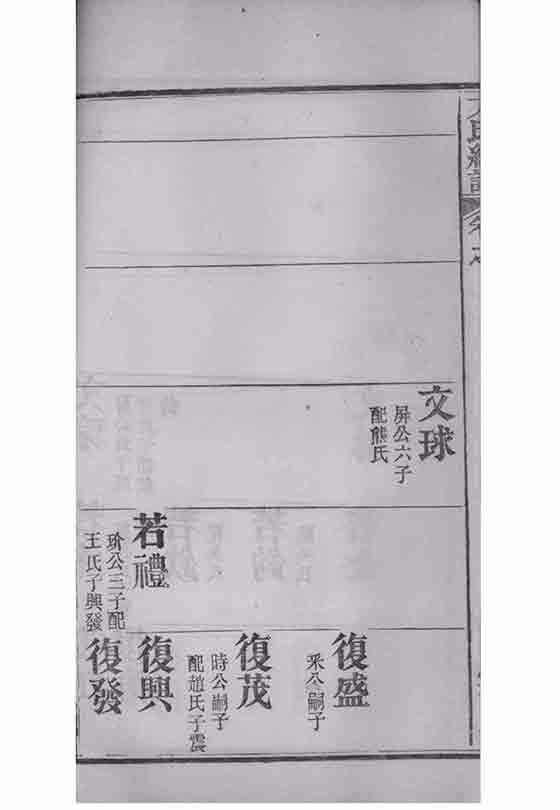 文球
屏公六子
配熊氏
若禮
玠公三子配
王氏子興發
復盛
釆公嗣子
復茂
時公嗣子
配趙氏子震
復興
復發